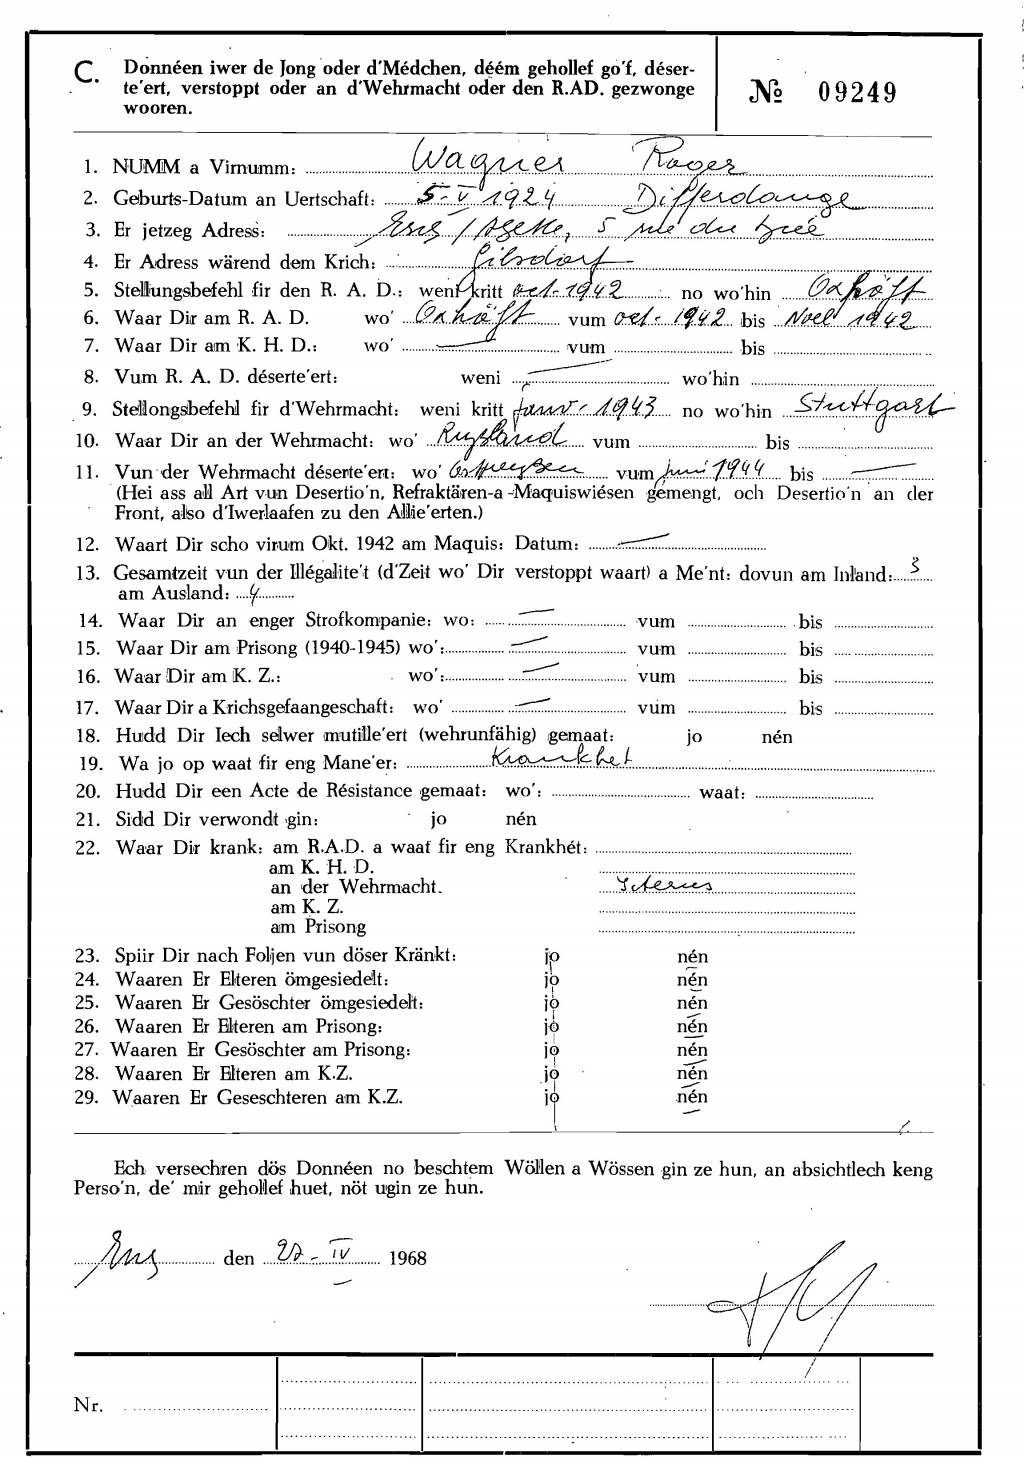 C. Donnéen iwer de Jong oder d'Médchen, déém gehollef go'f, déser-
te'ert, verstoppt oder an d'Wehrmacht oder den R.AD. gezwonge
wooren.
№ 09249
1. NUMM a Virnumm: Wagner Roger
2. Geburts-Datum an Uertschaft: 5-V 1924 Differdange
3. Er jetzeg Adress: 5 rue du
4. Er Adress wärend dem Krich: Gilsdorf
5. Stellungsbefehl fir den R. A. D.: weni kritt oct-1942 no wo'hin Oxhöft
6. Waar Dir am R. A. D. wo' Oxhöft vum oct- 1942 bis Noel 1942
7. Waar Dir am K. H. D.: wo' — vum bis
8. Vum R. A. D. déserte'ert: weni — wo'hin
9. Stellongsbefehl fir d'Wehrmacht: weni kritt Janv- 1943 no wo'hin Stuttgart
10. Waar Dir an der Wehrmacht: wo' Russland vum bis
11. Vun der Wehrmacht déserte'ert: wo' Ostpreussen vum juni 1944 bis —
(Hei ass all Art vun Desertio'n, Refraktären-a -Maquiswiésen gemengt, och Desertio'n an der
Front, also d'Iwerlaafen zu den Allie'erten.)
12. Waart Dir scho virum Okt. 1942 am Maquis: Datum: —
13. Gesamtzeit vun der Illégalite't (d'Zeit wo' Dir verstoppt waart) a Me'nt: dovun am Inland: 3
am Ausland: 4
14. Waar Dir an enger Strofkompanie: wo: — vum bis
15. Waar Dir am Prisong (1940-1945) wo': — vum bis
16. Waar Dir am K. Z.: wo': — vum bis
17. Waar Dir a Krichsgefaangeschaft: wo' — vum bis
18. Hudd Dir Iech selwer mutille'ert (wehrunfähig) gemaat: jo nén
19. Wa jo op waat fir eng Mane'er: Krankhet
20. Hudd Dir een Acte de Résistance gemaat: wo': waat:
21. Sidd Dir verwondt gin: jo nén
22. Waar Dir krank: am R.A.D. a waat fir eng Krankhét:
am K. H. D.
an der Wehrmacht. Icterus
am K. Z.
am Prisong
23. Spiir Dir nach Foljen vun döser Kränkt: jo nén
24. Waaren Er Elteren ömgesiedelt: jo nén
25. Waaren Er Gesöschter ömgesiedelt: jo nén
26. Waaren Er Elteren am Prisong: jo nén
27. Waaren Er Gesöschter am Prisong: jo nén
28. Waaren Er Elteren am K.Z. jo nén
29. Waaren Er Geseschteren am K.Z. jo nén
Ech versechren dös Donnéen no beschtem Wöllen a Wössen gin ze hun, an absichtlech keng
Perso'n, de' mir gehollef huet, nöt ugin ze hun.
den IV 1968
Nr.